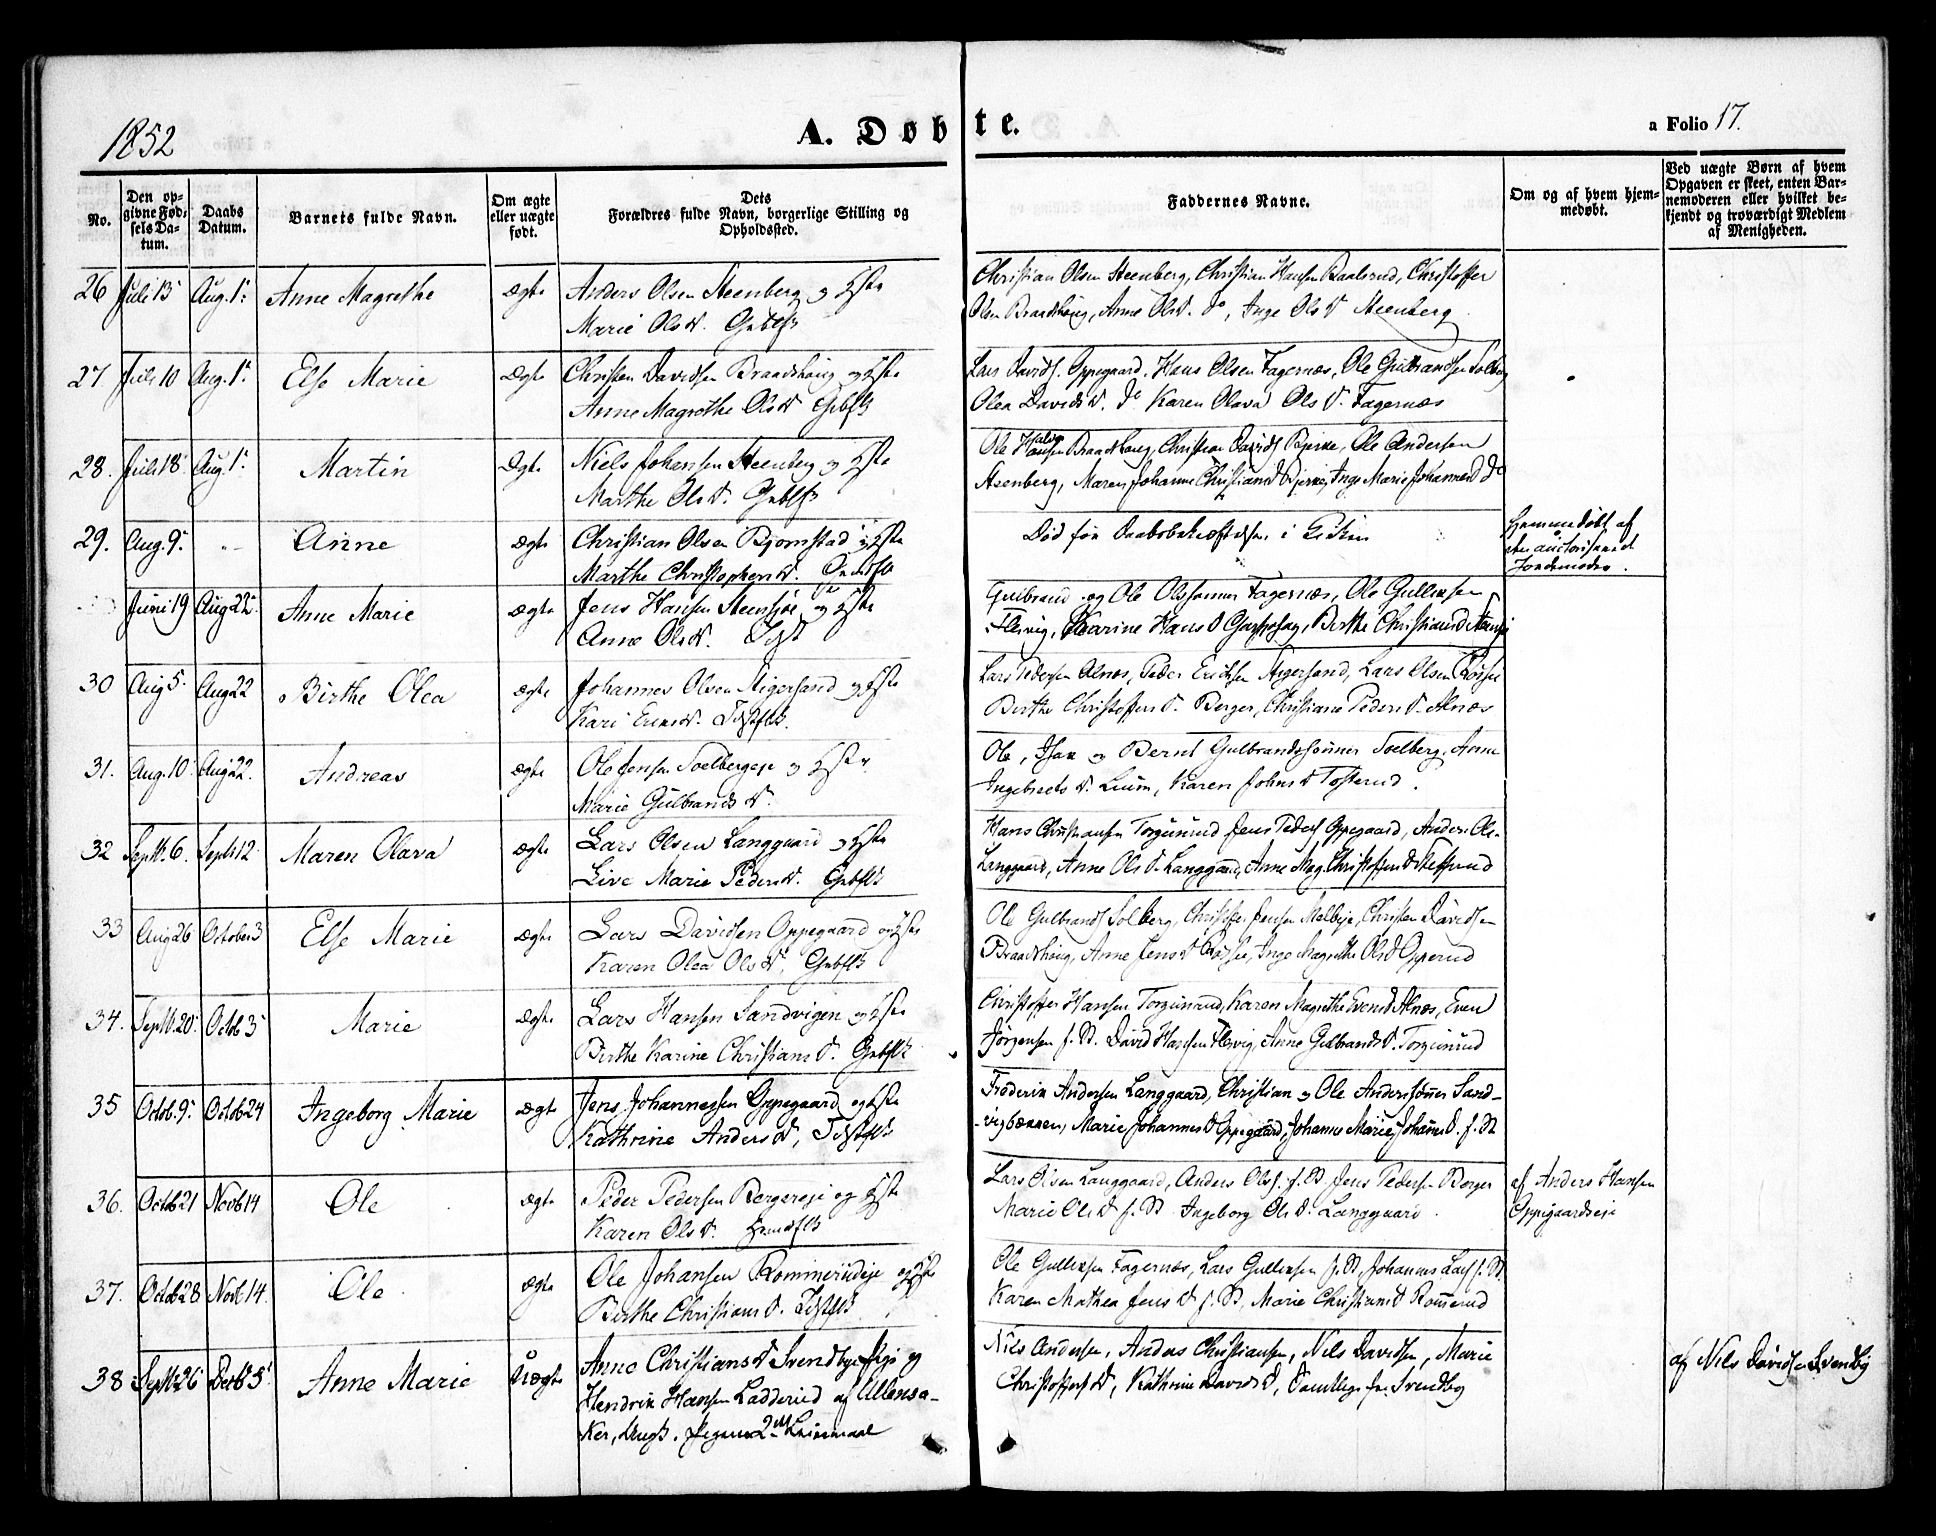 1852
A. Døbte.
a Folio 17.
No.
Den op-
givne Fød-
sels Da-
tum.
Daabs
Datum.
Barnets fulde Navn.
Om ægte
eller uægte
født.
Dets
Forældres fulde Navn, borgerlige Stilling og
Opholdssted.
Faddernes Navne.
Om og af hvem hjem-
medøbt.
Ved uægte Børn af hvem
Opgaven er skeet, enten Bar-
nemoderen eller hvilket be-
kjendt og troværdigt Medlem
af Menigheden.
26 Juli 15 Aug. 1. Anne Magrethe ægte Anders Olsen Steenberg og Hstr
Marie Olsd. Gbflk
Christian Olsen Steenberg, Christian Hansen Christoffer
Olsen Braadthoug, Anne Olsd. do, Inge Olsd Steenberg
27 Juli 10 Aug. 1. Else Marie ægte Christen Davidsen Braadshoug og Hstr
Anne Magrethe Olsd Gbflk
Lars Davids. Oppegaard, Hans Olsen Fagernæs, Ole Gulbrandsen Solberg
Olea Davidsd. do Karen Olava Olsd. Fagernæs
28. Juli 18 Aug. 1. Martin ægte Niels Johansen Steenberg og Hstr
Marthe Olsd. Gbflk
Ole Halvor Hansen Braadthoug, Christian Davids Bjerke, Ole Andersen
Steenberg, Maren Johanne Christiansd Bjerke, Inge Marie Johannesd do
29. Aug. 9. "- Anne ægte Christian Olsen Bjornstad og Hstr
Marthe Christophersd.
Død før Daabsbekræftelsen i Kirken
Hjemmedøbt af
den autoriserede
Jordemoder.
Juni 19 Aug 22. Anne Marie ægte Jens Hansen og Hstr
Anne Olsd.
Gulbrand og Ole Olssønner Fagernæs, Ole Gulliksen
Flesvig, Karine Hansd Berthe Christiansd
30 Aug 5. Aug 22 Birthe Olea ægte Johannes Olsen Aigersand og Hstr
Kari Ericsd.
Lars Pedersen Alnæs, Peder Erichsen Aigersand, Lars Olsen
Berthe Christoffersd. Berger, Christiane Pedersd. Alnæs
31. Aug. 10 Aug 22. Andreas ægte Ole Jensen Soelbergeje og Hstr
Marie Gulbrandsd.
Ole, Isak og Bernt Gulbrandssønner Soelberg, Anne
Ingebretsd. Karen Johnsd Tofterud.
32 Septb. 6. Septb 12 Maren Olava ægte Lars Olsen Langgaard og Hstr
Live Marie Pedersd. Gbflk
Hans Christiansen Torgunrud Jens Peders Oppegaard, Anders Ols.
Langgaard, Anne Olsd. Langgaard, Anne Mag. Christoffersd
33 Aug 26 October 3 Else Marie ægte Lars Davidsen Oppegaard og Hstr
Karen Olea Olsd. Gbflk
Ole Gulbrands Solberg, Christoffer Jensen Melbyeje, Christen Davidsen
Braadthoug, Anne Jensd Inge Magrethe Olsd Opperud
34. Septb. 20. Octob 3 Marie ægte Lars Hansen Sandvigen og Hstr
Birthe Karine Christiansd. Gbflk
Christoffer Hansen Torgunrud, Karen Magrethe Evensd Alnæs, Even
Jørgensen f. St. David Hansen Flesvig, Anne Gulbrandsd. Torgunrud
35 Octob. 9. Octob 24 Ingeborg Marie ægte Jens Johannessen Oppegaard og Hstr
Kathrine Andersd,
Frederik Andersen Langgaard, Christian og Ole Anderssønner Sand-
vigbakken, Marie Johannesd Oppegaard, Johanne Marie Johannesd. f. St
36. Octb 21 Novb 14 Ole ægte Peder Pedersen Bergereje og Hstr
Karen Olsd.
Lars Olsen Langgaard, Anders Ols. f. St Jens Pedersen Berger
Marie Olsd f. St Ingeborg Olsd. Langgaard.
af Anders Hansen
Oppegaardseje
37. Octob 28 Novb 14. Ole ægte Ole Johansen Rommerudeje og Hstr
Birthe Christiansd.
Ole Gulliksen Fagernæs, Lars Gulliksen f. St, Johannes Lars f. St.
Karen Mathea Jensd f. St, Marie Christiansd Rommerud
38 Septb 26 Decb 5 Anne Marie Uægte Anne Christiansd Svendby Pige og
Hendrik Hansen Ladderud af Ullensa-
ker, Ungk. Pigens 2det Leiermaal
Nils Andersen, Anders Christiansen, Nils Davidsen, Marie
Christoffersd, Kathrine Davidsd, Samtlige fra Svendby
af Nils Davidsen Svendby